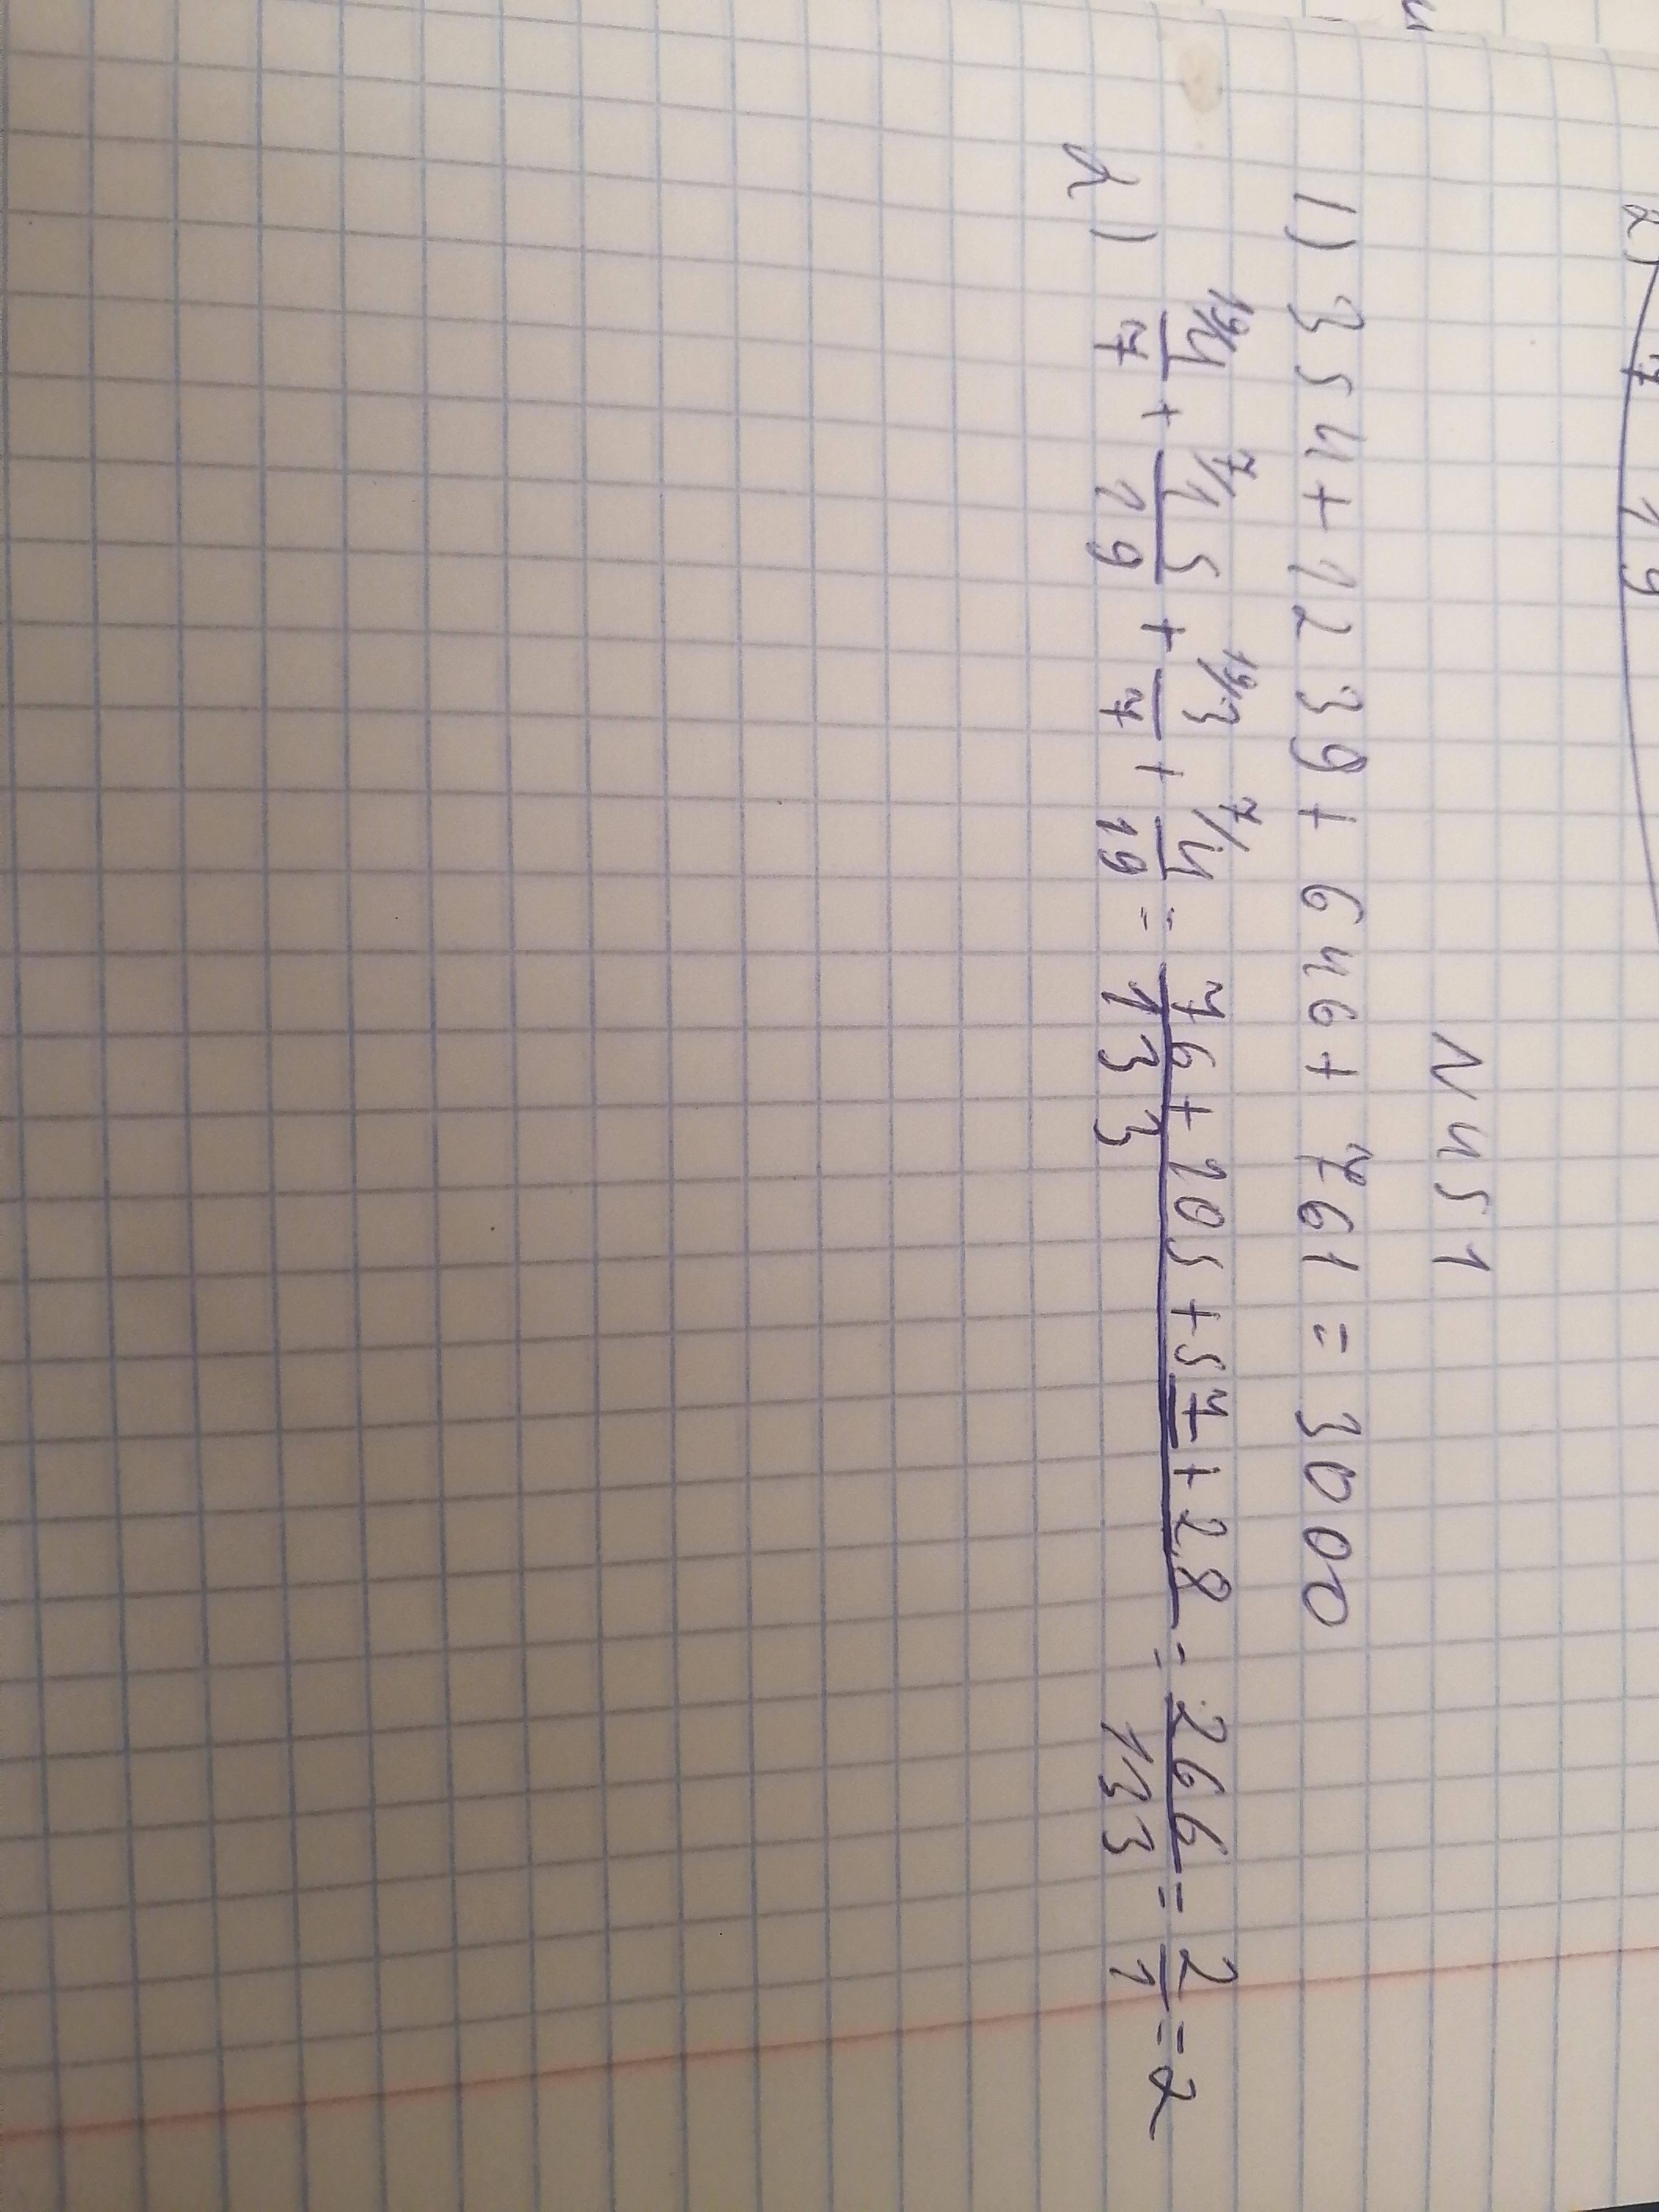 2) 7 19
N 451
1) 354 + 1239 + 646 + 761 = 3000
2) 19/4/7 + 7/15/19 + 19/3/7 + 7/4/19 = (76 + 105 + 57 + 28)/133 = 266/133 = 2/1 = 2